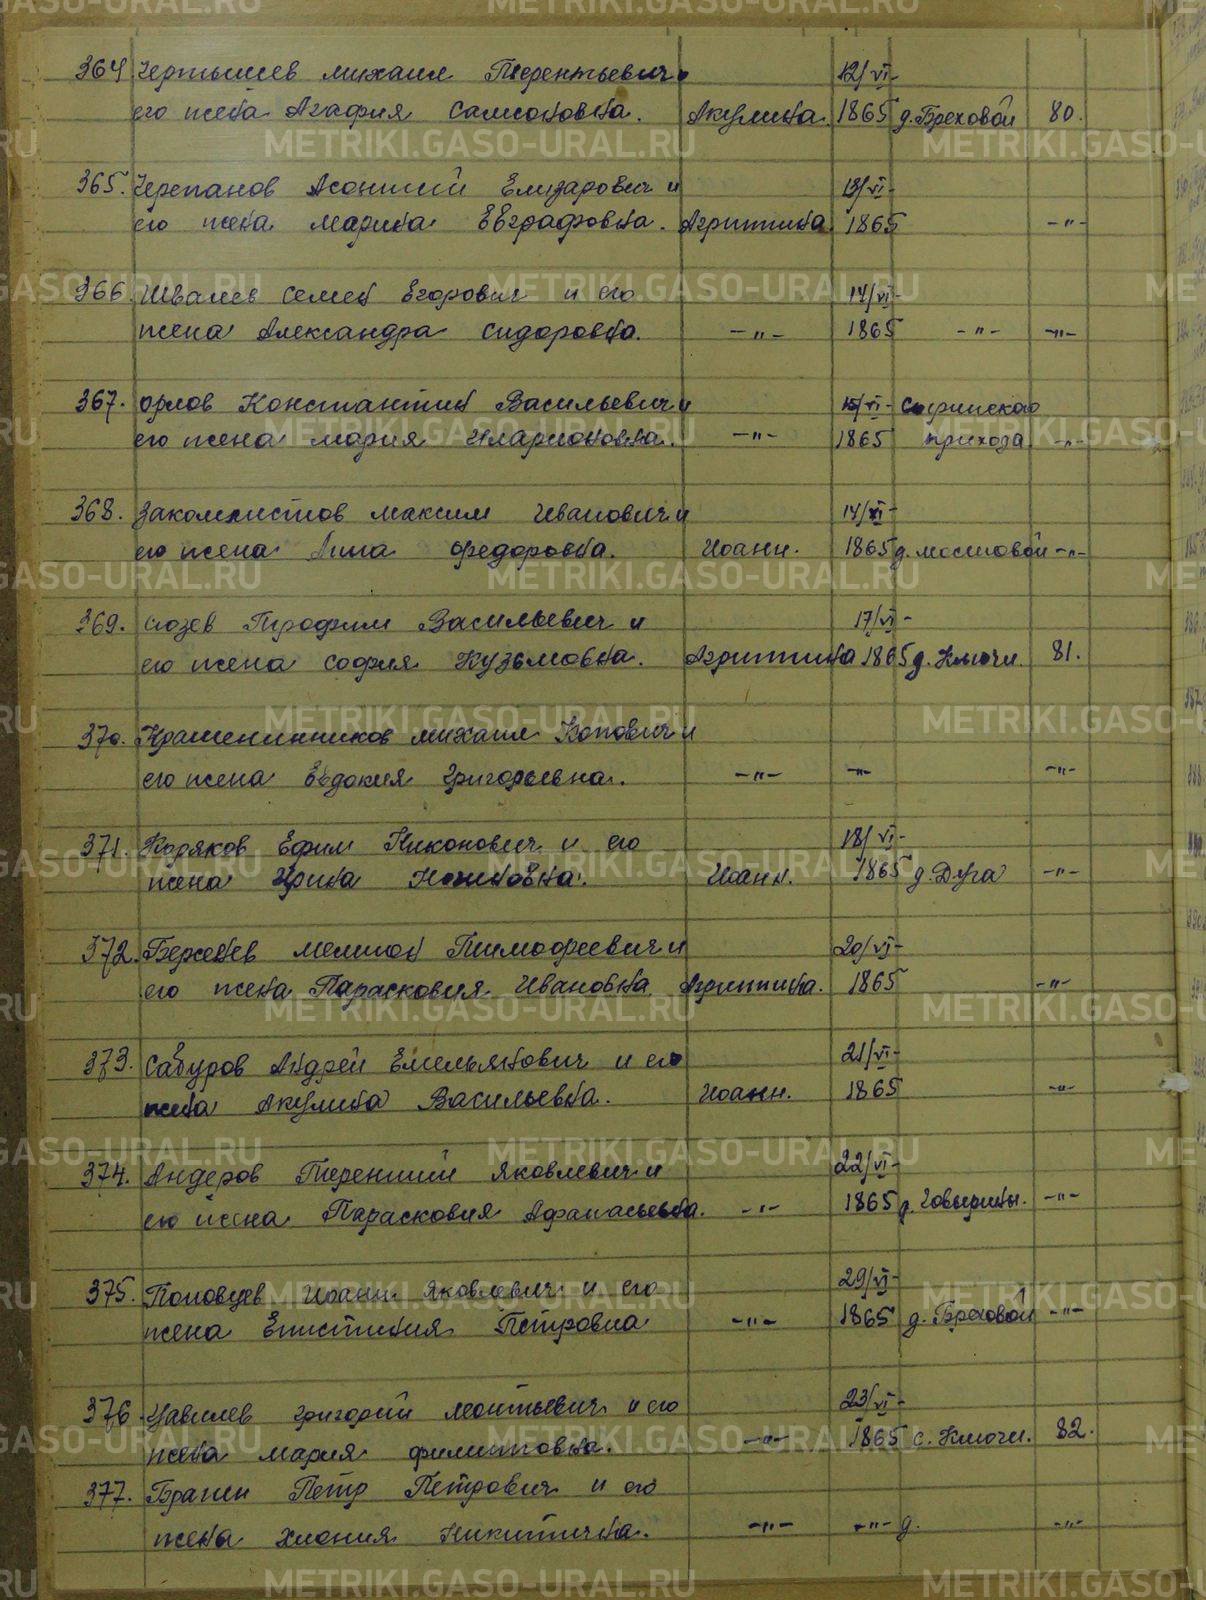 364 Чертышев Михаил Терентьевич 12/VI-
его жена Агафия Самсоновна. Акулина. 1865 д. Бреховой 80.
365. Черепанов Леонтий Елизарович и 13/VI-
его жена Марина Евграфовна. Агриппина 1865 -"-
366. Швалев Семен Егорович и его 14/VI-
жена Александра Сидоровна. -"- 1865 -"- -"-
367. Орлов Константин Васильевич и 15/VI- Сыринского
его жена Мария Иларионовна. -"- 1865 прихода -"-
368. Закомлистов Максим Иванович и 14/VI-
его жена Анна Федоровна. Иоанн. 1865 д. Мостовой -"-
369. Сюзев Трофим Васильевич и 17/VI-
его жена София Кузьмовна. Агриппина 1865 д. Ключи. 81.
370. Крашенинников Михаил Копович и
его жена Евдокия Григорьевна. -"- -"- -"-
371. Коряков Ефим Никонович и его 18/VI-
жена Ирина Иоанн. 1865 д. Дуга -"-
372. Берсенев Мелитон Тимофеевич и 20/VI-
его жена Парасковия Ивановна. Агриппина. 1865 -"-
373. Сабуров Андрей Емельянович и его 21/VI-
жена Акулина Васильевна. Иоанн. 1865 -"-
374. Андеров Терентий Яковлевич и 22/VI-
его жена Парасковия Афанасьевна. -"- 1865 д. Говырины. -"-
375. Поповцев Иоанн Яковлевич и его 29/VI-
жена Епистиния Петровна -"- 1865 д. Бреховой -"-
376. Чавилев Григорий Леонтьевич и его 23/VI-
жена Мария Филипповна. -"- 1865 с. Ключи. 82.
377. Брагин Петр Петрович и его
жена Хиония Никитична. -"- -"- д. -"-